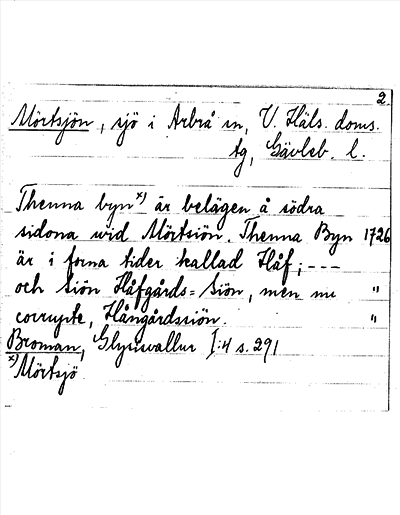 2
Mörtsjön, sjö i Arbrå sn, V. Häls. doms.
tg, Gävleb. l.
Thenna byn x) är belägen å södra
sidona wid Mörtsiön. Thenna Byn 1726
är i forna tider kallad Håf; ---
och siön Håfgårds=siön, men nu "
corrupte, Hångårdssiön. "
Broman, Glysisvallur I:4 s. 291
x) Mörtsjö